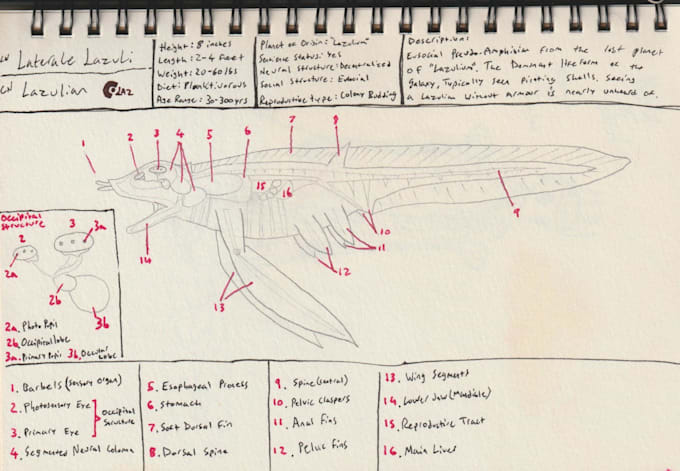 LN Laterale Lazuli
CN Lazulian LAZ
Height: 8 inches
Length: 2-4 feet
Weight: 20-60 lbs
Diet: Planktivorous
Age Range: 30-300yrs
Planet of Origin: "Lazulum"
Sentience Status: Yes
Neural Structure: Decentralized
Social Structure: Eusocial
Reproductive type: Colony Budding
Description:
Eusocial Pseudo-Amphibian from the lost planet
of "Lazulium". The Dominant lifeform of the
Galaxy, Typically seen Piloting Shells. Seeing
a Lazulian without Armour is nearly unheard of.
1 2 3 4 5 6 7 8
15 16
9
10
11
12
13
14
Occipital
Structure
2 3 3a
2a
2b 3b
2a. Photo Pupil
2b. Occipital Lobe
3a. Primary Pupil 3b. Lobe
1. Barbels (Sensory Organ)
2. Photosensory Eye
3. Primary Eye
Occipital
Structure
4. Segmented Neural Column
5. Esophageal Process
6. Stomach
7. Soft Dorsal Fin
8. Dorsal Spine
9. Spine (central)
10. Pelvic Claspers
11. Anal Fins
12. Pelvic Fins
13. Wing Segments
14. Lower Jaw (Mandible)
15. Reproductive Tract
16. Main Liver